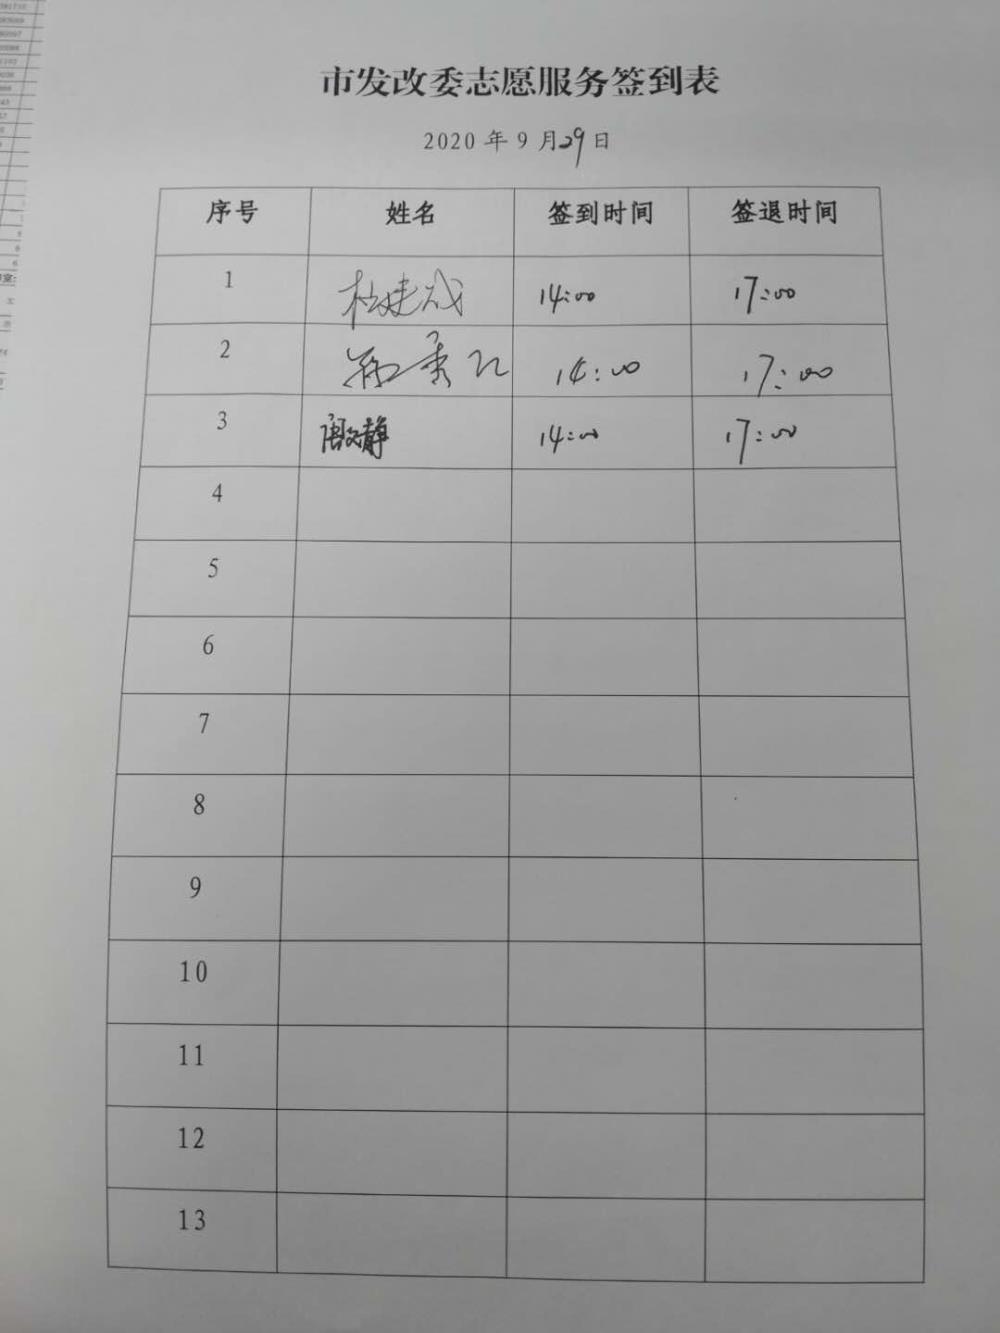 市发改委志愿服务签到表
2020 年 9 月29日
序号 姓名 签到时间 签退时间
1 杜建成 14:00 17:00
2 14:00 17:00
3 静 14:00 17:00
4
5
6
7
8
9
10
11
12
13